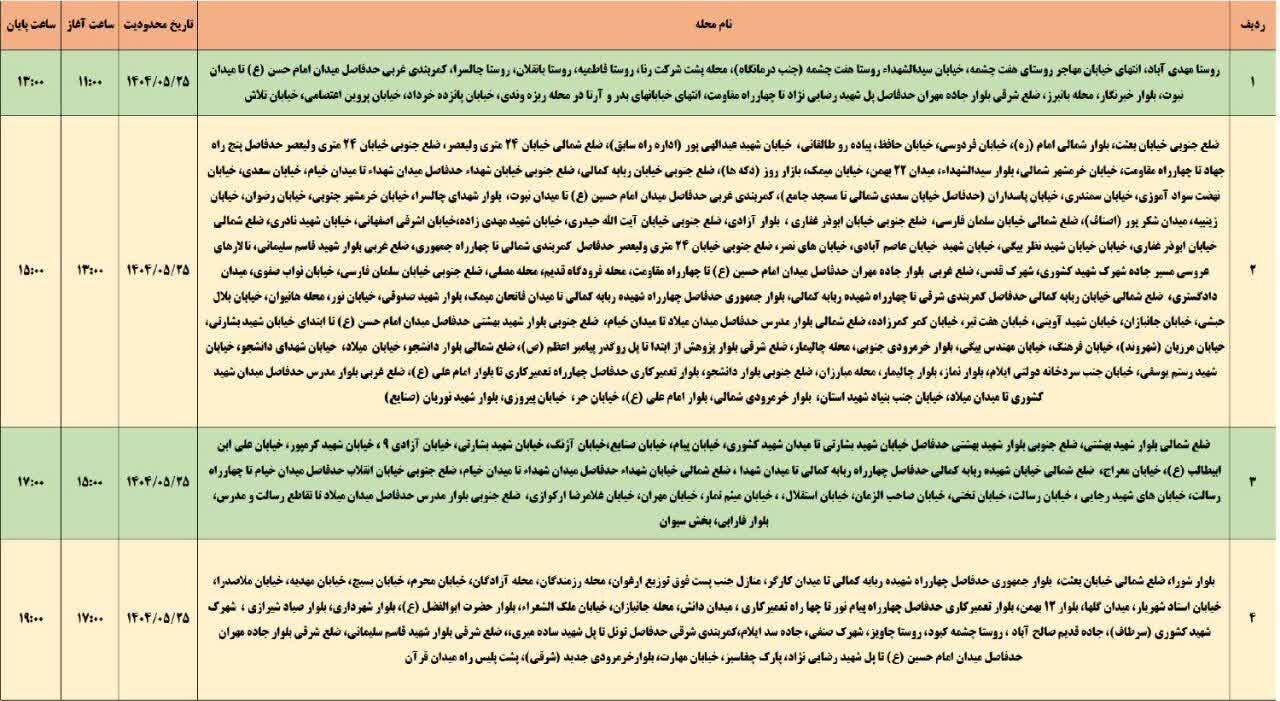 ردیف	نام محله	تاریخ محدودیت	ساعت آغاز	ساعت پایان
۱	۱۴۰۴/۰۵/۲۵	۱۱:۰۰	۱۳:۰۰
روستا مهدی آباد، انتهای خیابان مهاجر روستای هفت چشمه، خیابان سیدالشهداء روستا هفت چشمه (جنب درمانگاه)، محله پشت شرکت رنا، روستا فاطمیه، روستا بانقلان، روستا چالسرا، کمربندی غربی حدفاصل میدان امام حسن (ع) تا میدان
نبوت، بلوار خبرنگار، محله بانبرز، ضلع شرقی بلوار جاده مهران حدفاصل پل شهید رضایی نژاد تا چهارراه مقاومت، انتهای خیابانهای بدر و آرنا در محله ریزه وندی، خیابان پانزده خرداد، خیابان پروین اعتصامی، خیابان تلاش
۲	۱۴۰۴/۰۵/۲۵	۱۳:۰۰	۱۵:۰۰
ضلع جنوبی خیابان بعثت، بلوار شمالی امام (ره)، خیابان فردوسی، خیابان حافظ، پیاده رو طالقانی، خیابان شهید عبدالهی پور (اداره راه سابق)، ضلع شمالی خیابان ۲۴ متری ولیعصر، ضلع جنوبی خیابان ۲۴ متری ولیعصر حدفاصل پنج راه
جهاد تا چهارراه مقاومت، خیابان خرمشهر شمالی، بلوار سیدالشهداء، میدان ۲۲ بهمن، خیابان میمک، بازار روز (دکه ها)، ضلع جنوبی خیابان ربابه کمالی، ضلع جنوبی خیابان شهداء حدفاصل میدان شهداء تا میدان خیام، خیابان سعدی، خیابان
نهضت سواد آموزی، خیابان سمندری، خیابان پاسداران (حدفاصل خیابان سعدی شمالی تا مسجد جامع)، کمربندی غربی حدفاصل میدان امام حسین (ع) تا میدان نبوت، بلوار شهدای چالسرا، خیابان خرمشهر جنوبی، خیابان رضوان، خیابان
زینبیه، میدان شکر پور (اصناف)، ضلع شمالی خیابان سلمان فارسی، ضلع جنوبی خیابان ابوذر غفاری ، بلوار آزادی، ضلع جنوبی خیابان آیت الله حیدری، خیابان شهید مهدی زاده،خیابان اشرفی اصفهانی، خیابان شهید نادری، ضلع شمالی
خیابان ابوذر غفاری، خیابان خیابان شهید نظر بیگی، خیابان شهید خیابان عاصم آبادی، خیابان های نصر، ضلع جنوبی خیابان ۲۴ متری ولیعصر حدفاصل کمربندی شمالی تا چهارراه جمهوری، ضلع غربی بلوار شهید قاسم سلیمانی، تالارهای
عروسی مسیر جاده شهرک شهید کشوری، شهرک قدس، ضلع غربی بلوار جاده مهران حدفاصل میدان امام حسین (ع) تا چهارراه مقاومت، محله فرودگاه قدیم، محله مصلی، ضلع جنوبی خیابان سلمان فارسی، خیابان نواب صفوی، میدان
دادگستری، ضلع شمالی خیابان ربابه کمالی حدفاصل کمربندی شرقی تا چهارراه شهیده ربابه کمالی، بلوار جمهوری حدفاصل چهارراه شهیده ربابه کمالی تا میدان فاتحان میمک، بلوار شهید صدوقی، خیابان نور، محله هانیوان، خیابان بلال
حبشی، خیابان جانبازان، خیابان شهید آوینی، خیابان هفت تیر، خیابان کمر کمرزاده، ضلع شمالی بلوار مدرس حدفاصل میدان میلاد تا میدان خیام، ضلع جنوبی بلوار شهید بهشتی حدفاصل میدان امام حسن (ع) تا ابتدای خیابان شهید بشارتی،
خیابان مرزبان (شهروند)، خیابان فرهنگ، خیابان مهندس بیگی، بلوار خرمرودی جنوبی، محله چالیمار، ضلع شرقی بلوار پژوهش از ابتدا تا پل روگذر پیامبر اعظم (ص)، ضلع شمالی بلوار دانشجو، خیابان میلاد، خیابان شهدای دانشجو، خیابان
شهید رستم یوسفی، خیابان جنب سردخانه دولتی ایلام، بلوار نماز، بلوار چالیمار، محله مبارزان، ضلع جنوبی بلوار دانشجو، بلوار تعمیرکاری حدفاصل چهارراه تعمیرکاری تا بلوار امام علی (ع)، ضلع غربی بلوار مدرس حدفاصل میدان شهید
کشوری تا میدان میلاد، خیابان جنب بنیاد شهید استان، بلوار خرمرودی شمالی، بلوار امام علی (ع)، خیابان حر، خیابان پیروزی، بلوار شهید نوریان (صنایع)
۳	۱۴۰۴/۰۵/۲۵	۱۵:۰۰	۱۷:۰۰
ضلع شمالی بلوار شهید بهشتی، ضلع جنوبی بلوار شهید بهشتی حدفاصل خیابان شهید بشارتی تا میدان شهید کشوری، خیابان پیام، خیابان صنایع،خیابان آژنگ، خیابان شهید بشارتی، خیابان آزادی ۹ ، خیابان شهید کرمپور، خیابان علی ابن
ابیطالب (ع)، خیابان معراج، ضلع شمالی خیابان شهیده ربابه کمالی حدفاصل چهارراه ربابه کمالی تا میدان شهدا ، ضلع شمالی خیابان شهداء حدفاصل میدان شهداء تا میدان خیام، ضلع جنوبی خیابان انقلاب حدفاصل میدان خیام تا چهارراه
رسالت، خیابان های شهید رجایی ، خیابان رسالت، خیابان تختی، خیابان صاحب الزمان، خیابان استقلال، ، خیابان میثم تمار، خیابان مهران، خیابان غلامرضا ارکوازی، ضلع جنوبی بلوار مدرس حدفاصل میدان میلاد تا تقاطع رسالت و مدرس،
بلوار فارابی، بخش سیوان
۴	۱۴۰۴/۰۵/۲۵	۱۷:۰۰	۱۹:۰۰
بلوار شورا، ضلع شمالی خیابان بعثت، بلوار جمهوری حدفاصل چهارراه شهیده ربابه کمالی تا میدان کارگر، منازل جنب پست فوق توزیع ارغوان، محله رزمندگان، محله آزادگان، خیابان محرم، خیابان بسیج، خیابان مهدیه، خیابان ملاصدرا،
خیابان استاد شهریار، میدان گلها، بلوار ۱۲ بهمن، بلوار تعمیرکاری حدفاصل چهارراه پیام نور تا چها راه تعمیرکاری ، میدان دانش، محله جانبازان، خیابان ملک الشعراء، بلوار حضرت ابوالفضل (ع)، بلوار شهرداری، بلوار صیاد شیرازی ، شهرک
شهید کشوری (سرطاف)، جاده قدیم صالح آباد ، روستا چشمه کبود، روستا جاویز، شهرک صنفی، جاده سد ایلام،کمربندی شرقی حدفاصل تونل تا پل شهید ساده میری،، ضلع شرقی بلوار شهید قاسم سلیمانی، ضلع شرقی بلوار جاده مهران
حدفاصل میدان امام حسین (ع) تا پل شهید رضایی نژاد، پارک چقاسبز، خیابان مهارت، بلوارخرمرودی جدید (شرقی)، پشت پلیس راه میدان قرآن